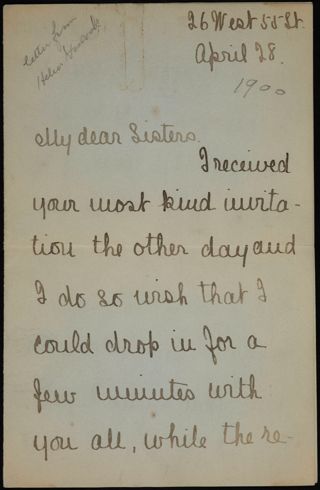 letter from
Helen
26 West 55 St.
April 28.
1900
My dear Sisters.
I received
your most kind invita-
tion the other day and
I do so wish that I
could drop in for a
few minutes with
you all, while the re-